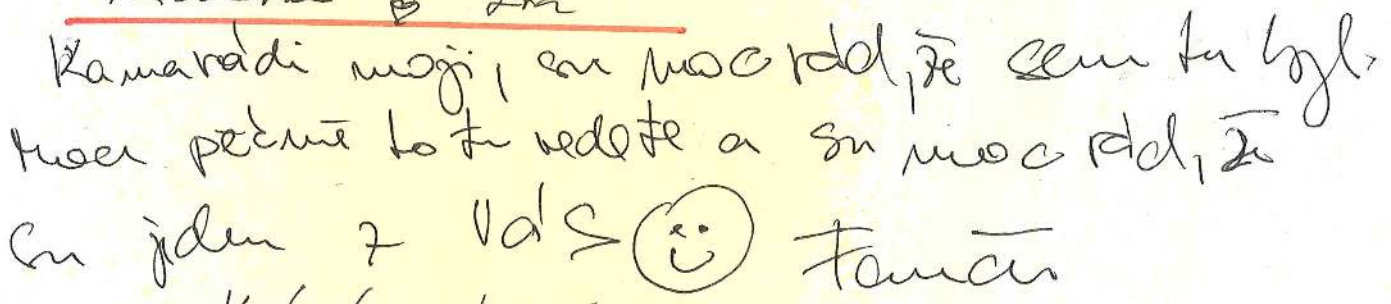 Kamarádi moji, su moc rád, že sem tu byl.
moc pěčně to tu vedete a su moc rád, že
su jeden z Vás